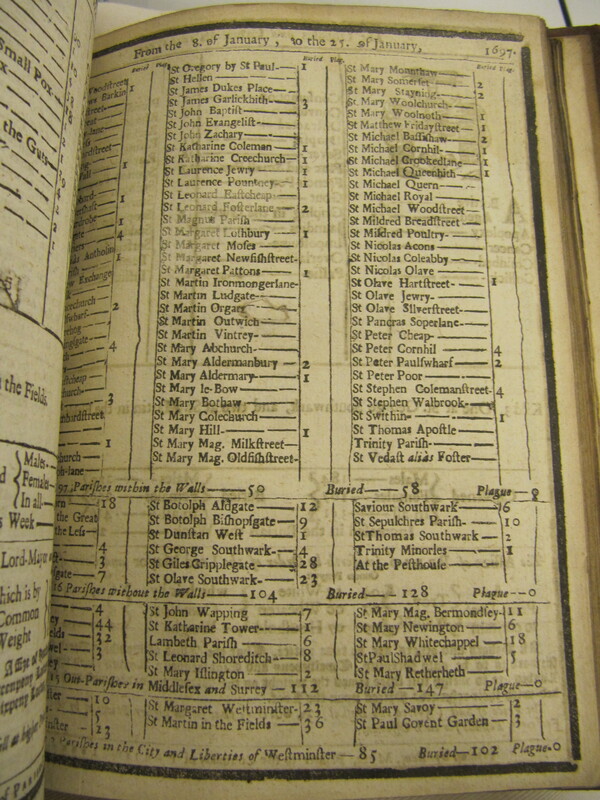 Small Pox
the Guts
the Fields
Males
Females
In all
Week
Lord-Mayor
which is by
Common
Weight
From the 8. of January, to the 25. of January, 1697.
Buried Plag.
1
4
2
4
3
1
Buried Plag.
St Gregory by St Paul 1
St Hellen
St James Dukes Place
St James Garlickhith 3
St John Baptist
St John Evangelist
St John Zachary
St Katharine Coleman 1
St Katharine Creechurch 1
St Laurence Jewry 1
St Laurence Pountney 1
St Leonard Eastcheap
St Leonard Fosterlane 2
St Magnus Parish
St Margaret Lothbury 1
St Margaret Moses
St Margaret Newfishstreet
St Margaret Pattons 1
St Martin Ironmongerlane
St Martin Ludgate
St Martin Orgars
St Martin Outwich
St Martin Vintrey
St Mary Abchurch
St Mary Aldermanbury 2
St Mary Aldermary 1
St Mary le-Bow
St Mary Bothaw
St Mary Colechurch
St Mary Hill 1
St Mary Mag. Milkstreet
St Mary Mag. Oldfishstreet
Buried Plag.
St Mary Mounthaw
St Mary Somerset 2
St Mary Stayning 2
St Mary Woolchurch
St Mary Woolnoth 1
St Matthew Fridaystreet 1
St Michael Bassishaw 2
St Michael Cornhil 1
St Michael Crookedlane 1
St Michael Queenhith 1
St Michael Quern
St Michael Royal
St Michael Woodstreet
St Mildred Breadstreet
St Mildred Poultry
St Nicolas Acons
St Nicolas Coleabby
St Nicolas Olave
St Olave Hartstreet 1
St Olave Jewry
St Olave Silverstreet
St Pancras Soperlane
St Peter Cheap
St Peter Cornhil 4
St Peter Paulswharf 2
St Peter Poor
St Stephen Colemanstreet 4
St Stephen Walbrook
St Swithin 1
St Thomas Apostle
Trinity Parish
St Vedast alias Foster
97 Parishes within the Walls 50 Buried 58 Plague 0
18
the Great
the Less
4
3
7
St Botolph Aldgate 12
St Botolph Bishopsgate 9
St Dunstan West 1
St George Southwark 4
St Giles Cripplegate 28
St Olave Southwark 23
Saviour Southwark 16
St Sepulchres Parish 10
St Thomas Southwark 2
Trinity Minories 1
At the Pesthouse
16 Parishes without the Walls 104 Buried 128 Plague 0
4
44
32
2
St John Wapping 7
St Katharine Tower 1
Lambeth Parish 6
St Leonard Shoreditch 8
St Mary Islington 2
St Mary Mag. Bermondsey 11
St Mary Newington 6
St Mary Whitechappel 18
St Paul Shadwel 5
St Mary Retherheth
Out-Parishes in Middlesex and Surrey 112 Buried 147 Plague 0
10
5
23
St Margaret Westminster 23
St Martin in the Fields 36
St Mary Savoy 2
St Paul Covent Garden 3
Parishes in the City and Liberties of Westminster 85 Buried 102 Plague 0